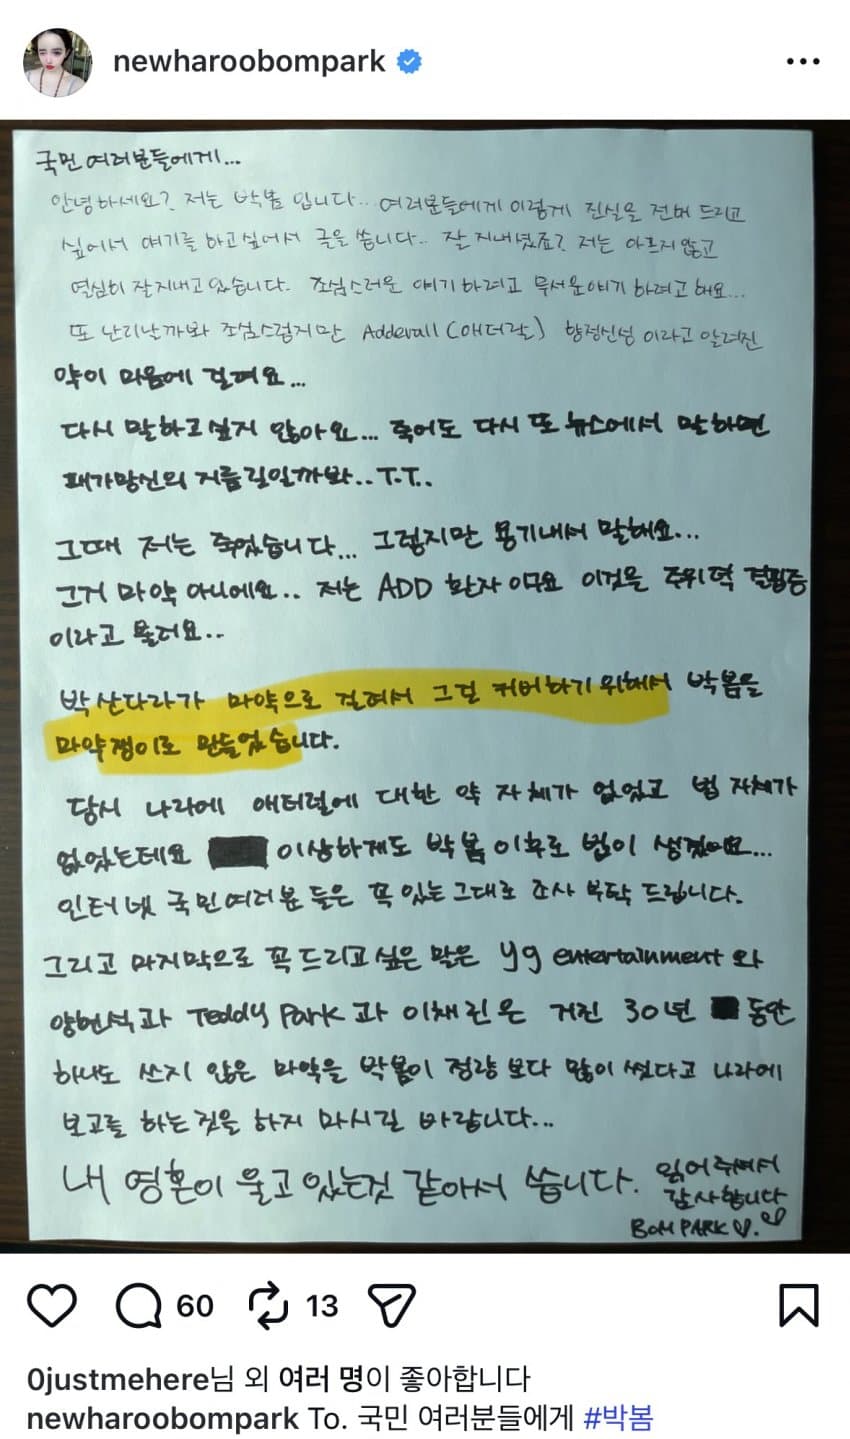 newharoobompark
국민 여러분들에게...
안녕하세요? 저는 박봄 입니다.. 여러분들에게 이렇게 진실을 전해 드리고
싶어서 얘기를 하고싶어서 글을 씁니다.. 잘 지내셨죠? 저는 아프지 않고
열심히 잘지내고 있습니다. 조심스러운 얘기 하려고 무서운얘기 하려고 해요...
또 난리날까봐 조심스럽지만 Adderall (애더랄) 향정신성 이라고 알려진
약이 마음에 걸려요...
다시 말하고싶지 않아요... 죽어도 다시 또 뉴스에서 말하면
패가망신의 지름길일까봐..T.T..
그때 저는 죽었습니다... 그렇지만 용기내서 말해요...
그거 마약 아니에요.. 저는 ADD 환자 이구요 이것은 주위력 결핍증
이라고 불려요..
박산다라가 마약으로 걸려서 그걸 커버하기 위해서 박봄을
마약쟁이로 만들었습니다.
당시 나라에 애더럴에 대한 약 자체가 없었고 법 자체가
없었는데요 이상하게도 박봄 이후로 법이 생겼어요...
인터넷 국민여러분 들은 꼭 있는그대로 조사 부탁 드립니다.
그리고 마지막으로 꼭 드리고싶은 말은 yg entertainment 와
양현석과 Teddy Park 과 이채린은 거진 30년 동안
하나도 쓰지 않은 마약을 박봄이 정량 보다 많이 썼다고 나라에
보고를 하는것을 하지 마시길 바랍니다...
내 영혼이 울고 있는것 같아서 씁니다. 읽어주셔서
감사합니다
BOM PARK ♡.♡
60 13
0justmehere님 외 여러 명이 좋아합니다
newharoobompark To. 국민 여러분들에게 #박봄